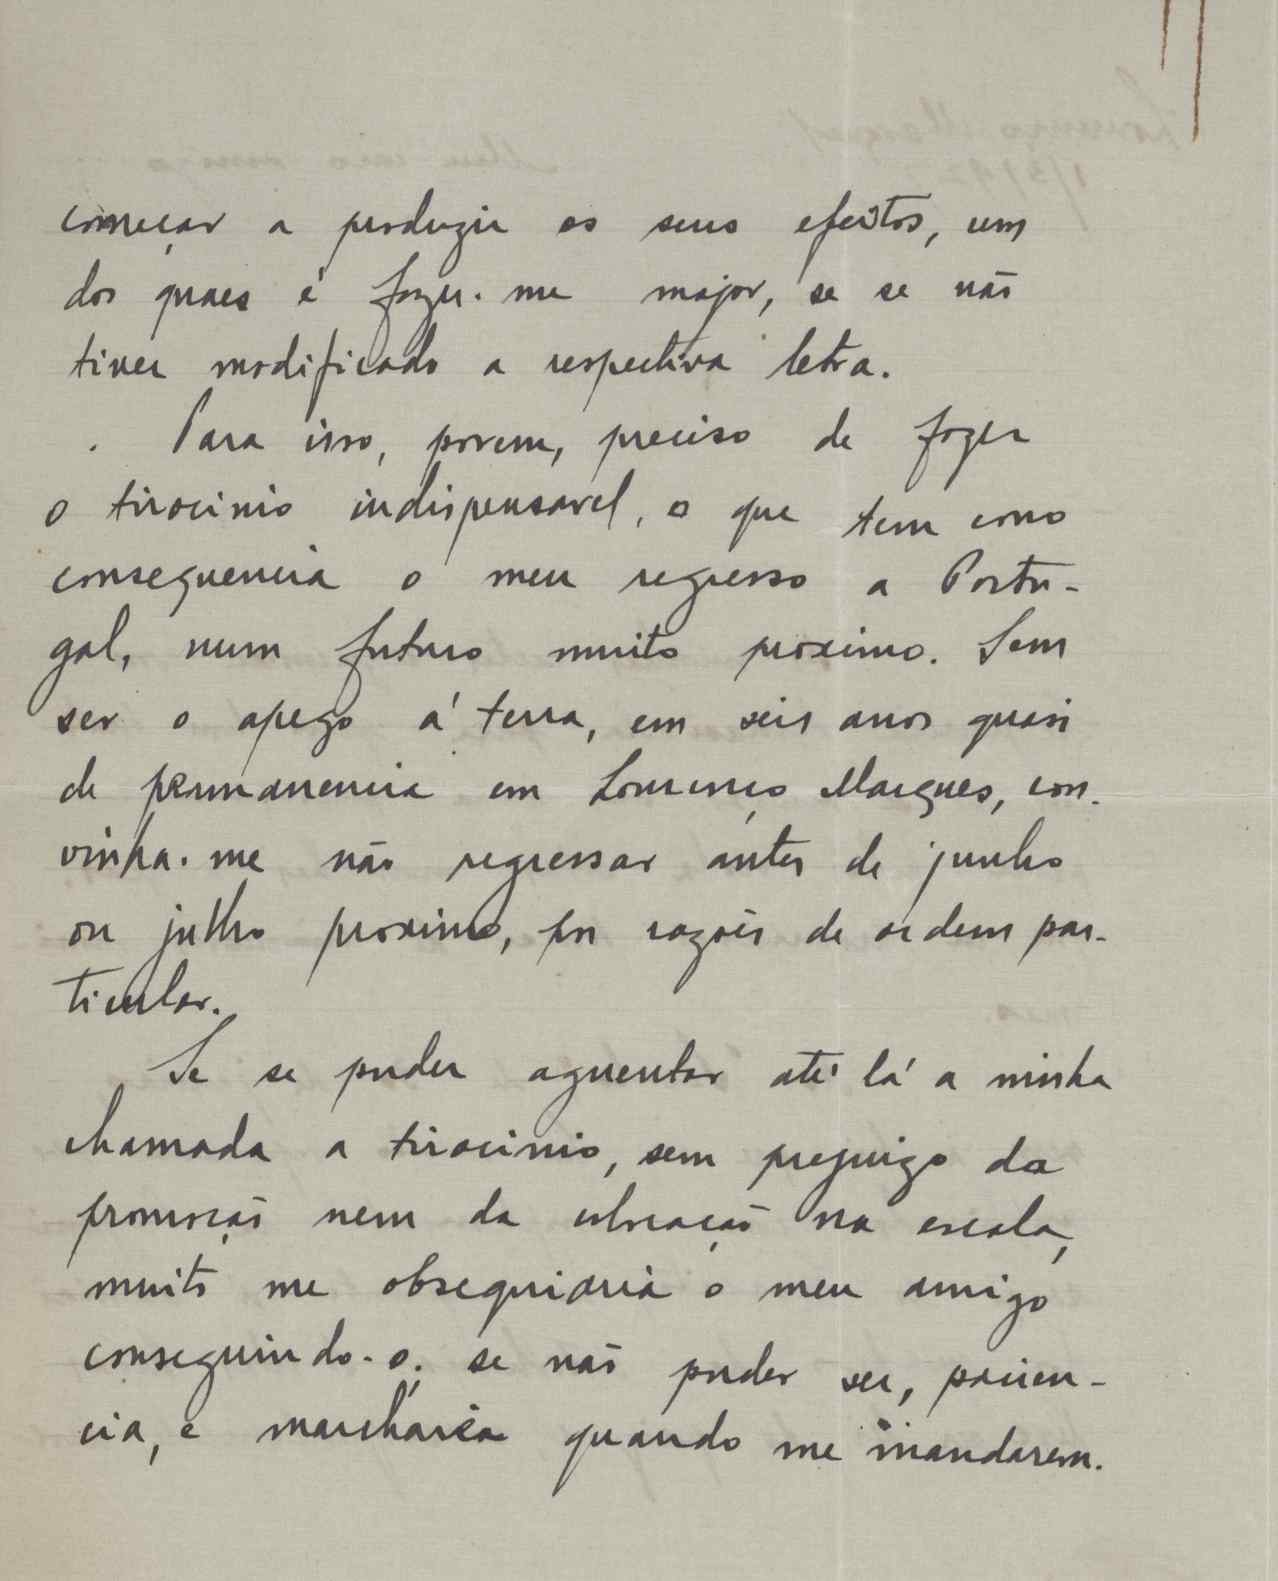 começar a produzir os seus efeitos, um
dos quaes é fazer-me major, se se não
tiver modificado a respectiva letra.
Para isso, porem, preciso de fazer
o tirocinio indispensavel, o que tem como
consequencia o meu regresso a Portu-
gal, num futuro muito proximo. Sem
ser o apego á terra, em seis anos quasi
de permanencia em Lourenço Marques, con-
vinha-me não regressar antes de junho
ou julho proximo, por razões de ordem par-
ticular.
Se se puder aguentar até lá a minha
chamada a tirocinio, sem prejuizo da
promoção nem da colocação na escala,
muito me obsequiaria o meu amigo
conseguindo-o; se não puder ser, pacien-
cia, e marcharia quando me mandarem.